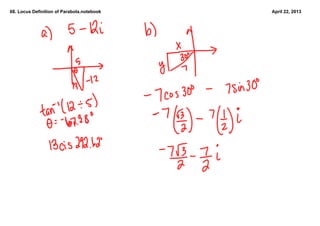 08. Locus Definition of Parabola.notebook
April 22, 2013
a) 5 - 12i
5
13
-12
tan⁻¹(12 ÷ 5)
θ = -67.38°
13cis 292.62°
b)
x
y
30°
7
-7cos30° - 7sin30°
-7(√3/2) - 7(1/2)i
-7√3/2 - 7/2 i